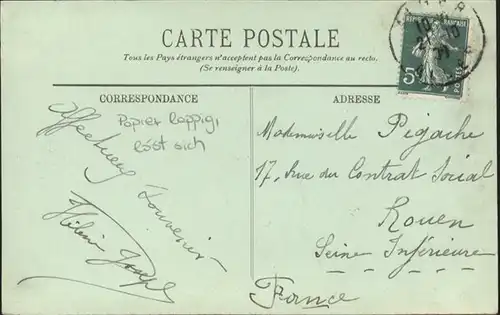 CARTE POSTALE
Tous les Pays étrangers n'acceptent pas la Correspondance au recto.
(Se renseigner à la Poste).
CORRESPONDANCE
Papier lappig,
löst sich
Affectueux
Souvenir
Hélène
ADRESSE
Mademoiselle Pigache
17, Rue du Contrat Social
Rouen
Seine Inférieure
France
5